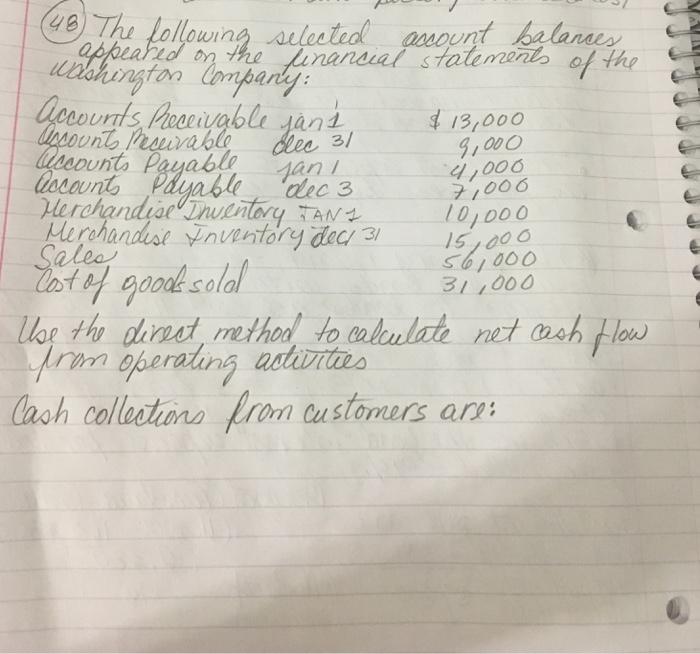 48 The following selected account balances
appeared on the financial statements of the
Washington Company:
Accounts Receivable jan 1 $ 13,000
Accounts Receivable dec 31 9,000
Accounts Payable jan 1 4,000
Accounts Payable dec 3 7,000
Merchandise Inventory JAN 1 10,000
Merchandise Inventory dec 31 15,000
Sales 56,000
Cost of goods sold 31,000
Use the direct method to calculate net cash flow
from operating activities
Cash collections from customers are: